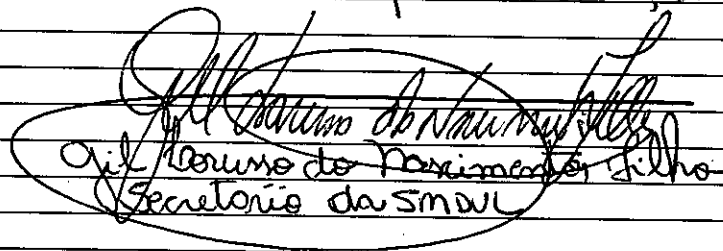 Gil Lorusso do Nascimento Filho
Gil Lorusso do Nascimento Filho
Secretário da SMDUL